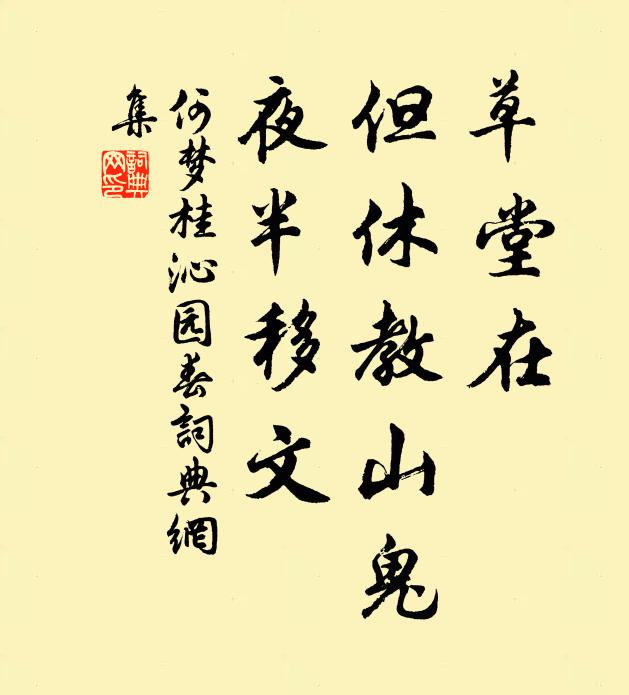 草堂在
但休教山鬼
夜半移文
何梦桂沁园春詞典網
集
詞典網印